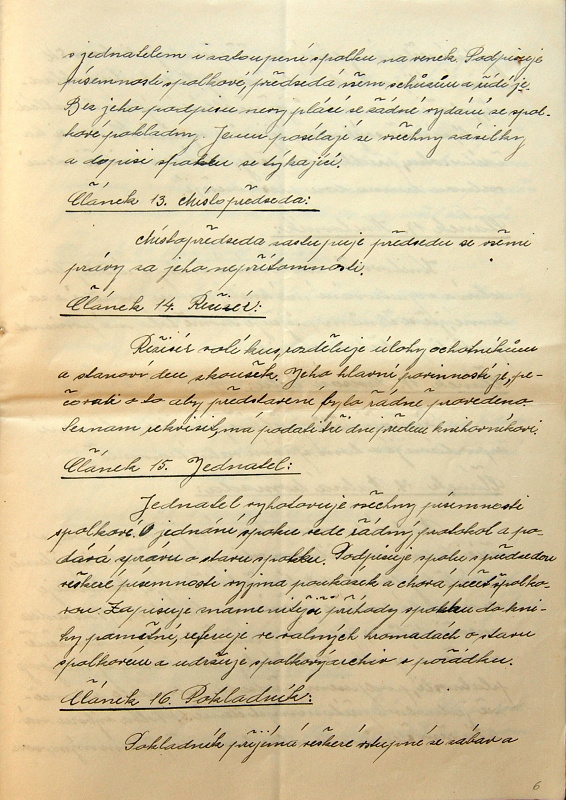 s jednatelem i zastoupení spolku na venek. Podpisuje
písemnosti spolkové, předsedá všem schůzím a řídí je.
Bez jeho podpisu nevyplácí se žádné vydání se spol-
kové pokladny. Jemu posílají se všechny zásilky
a dopisi spolku se týkající.
Článek 13. Místopředseda:
Místopředseda zastupuje předsedu se všemi
právy za jeho nepřítomnosti.
Článek 14. Režisér:
Režisér volí kus, rozděluje úlohy ochotníkům
a stanoví den zkoušek. Jeho hlavní povinností je, pe-
čovati o to aby představení bylo řádně provedeno.
Seznam rekvisit, má podati tři dni předem knihovníkovi.
Článek 15. Jednatel:
Jednatel vyhotovuje všechny písemnosti
spolkové. O jednání spolku vede řádný protokol a po-
dává zprávu o stavu spolku. Podpisuje spolu s předsedou
veškeré písemnosti vyjma poukázek a chová pečeť spolko-
vou. Zapisuje znamenitější příhody spolku do kni-
hy pamětní, referuje ve valných hromadách o stavu
spolkovém a udržuje spolkový archiv v pořádku.
Článek 16. Pokladník:
Pokladník přijímá veškeré vstupné se zábav a
6